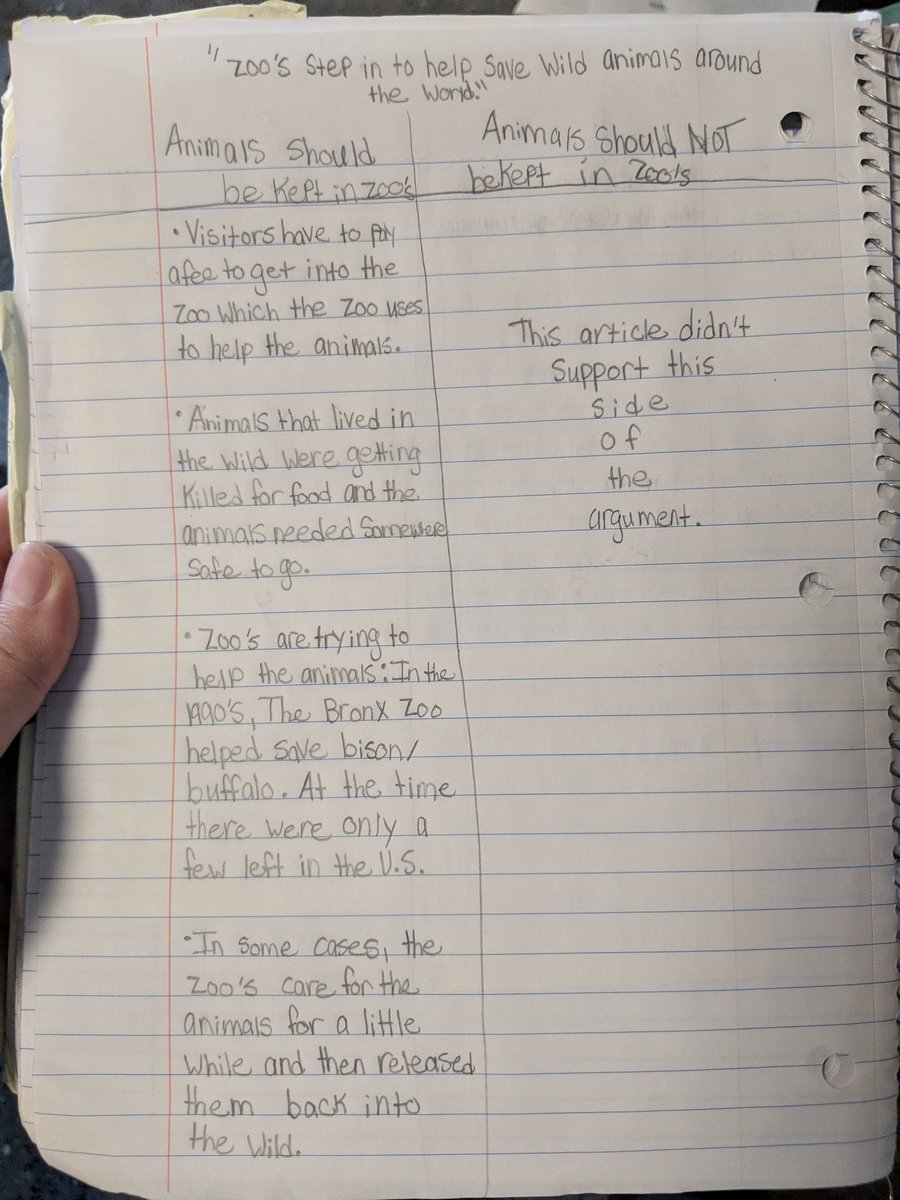 "Zoo's Step in to help Save Wild animals around
the World."
Animals Should
be Kept in Zoo's
• Visitors have to pay
a fee to get into the
Zoo Which the Zoo uses
to help the animals.
• Animals that lived in
the Wild Were getting
Killed for food and the
animals needed Somewere
Safe to go.
• Zoo's are trying to
help the animals: In the
1990's, The Bronx Zoo
helped Save bison/
buffalo. At the time
there were only a
few left in the U.S.
• In Some cases, the
Zoo's care for the
animals for a little
While and then released
them back into
the Wild.
Animals Should NOT
be Kept in Zoo's
This article didn't
Support this
Side
of
the
argument.